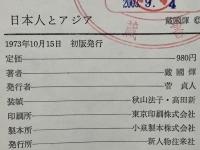 日本人とアジア
戴國煇 著
2003. 9. -4
1973年10月15日 初版発行
定価 980円
著者 戴國煇
発行者 菅貞人
装幀 秋山法子・高田新
印刷所 東京印刷株式会社
製本所 小泉製本株式会社
発行所 新人物往来社